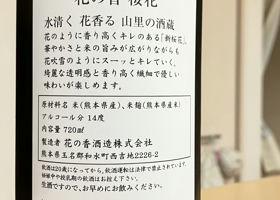 花の香 桜花
水清く 花香る 山里の酒蔵
花のように香り高くキレのある「新桜花」
華やかさと米の旨みが広がりながらも
花吹雪のようにスーッとキレていく。
綺麗な透明感と香り高く繊細で優しい
味わいが楽しめます。
原材料名 米(熊本県産)、米麹(熊本県産米)
アルコール分 14度
内容量 720㎖
製造者 花の香酒造株式会社
熊本県玉名郡和水町西吉地2226-2
飲酒は20歳になってから。飲酒運転は法律で禁止されています。
妊娠中や授乳期の飲酒はお控え下さい。
生酒ですので、お早めにお飲みください。